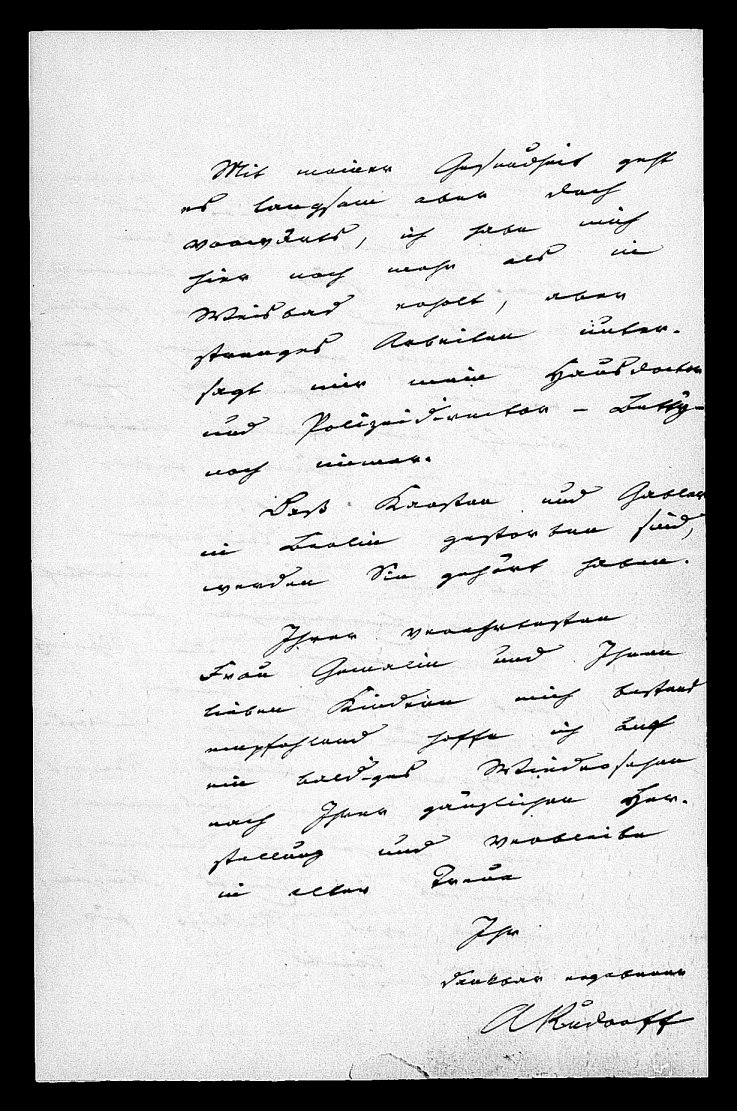 Mit meiner Gesundheit geht
es langsam aber doch
vorwärts, ich habe mich
hier noch mehr als in
Weisbad erholt, aber
strenges Arbeiten unter-
sagt mir mein Hausdoctor
und Polizeidirector – Betty –
noch immer.
Daß Karsten und Gabler
in Berlin gestorben sind,
werden Sie gehört haben.
Ihrer verehrtesten
Frau Gemalin und Ihren
lieben Kindern mich bestens
empfehlend hoffe ich auf
ein baldiges Wiedersehen
nach Ihrer gänzlichen Her-
stellung und verbleibe
in alter Treue
Ihr
dankbar ergebener
ARudorff